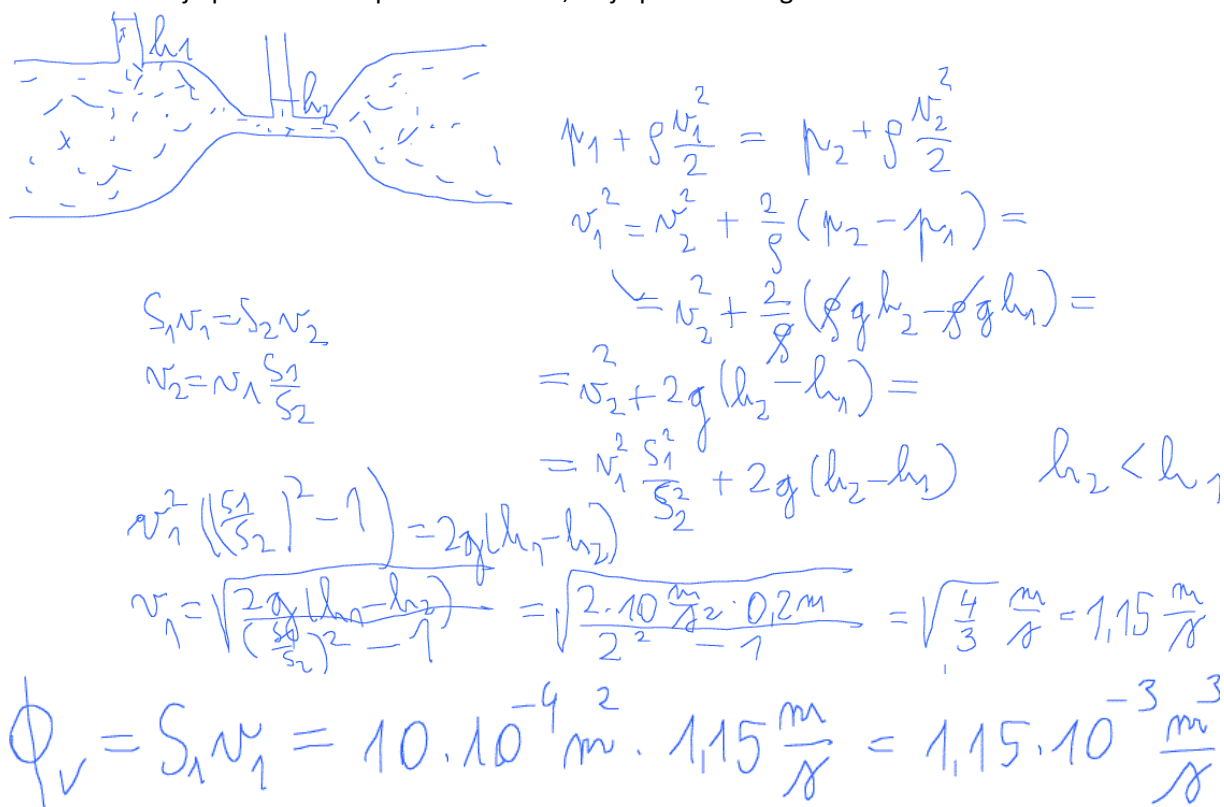 h₁
h₂
p₁ + ρ v₁²/2 = p₂ + ρ v₂²/2
v₁² = v₂² + 2/ρ (p₂ − p₁) =
= v₂² + 2/ρ (ρgh₂ − ρgh₁) =
S₁v₁ = S₂v₂
v₂ = v₁ S₁/S₂
= v₂² + 2g(h₂ − h₁) =
= v₁² S₁²/S₂² + 2g(h₂ − h₁) h₂ < h₁
v₁² ((S₁/S₂)² − 1) = 2g(h₁ − h₂)
v₁ = √(2g(h₁ − h₂)/((S₁/S₂)² − 1)) = √(2·10 m/s² · 0,2m/(2² − 1)) = √(4/3) m/s = 1,15 m/s
ϕᵥ = S₁v₁ = 10.10⁻⁴ m² · 1,15 m/s = 1,15.10⁻³ m³/s